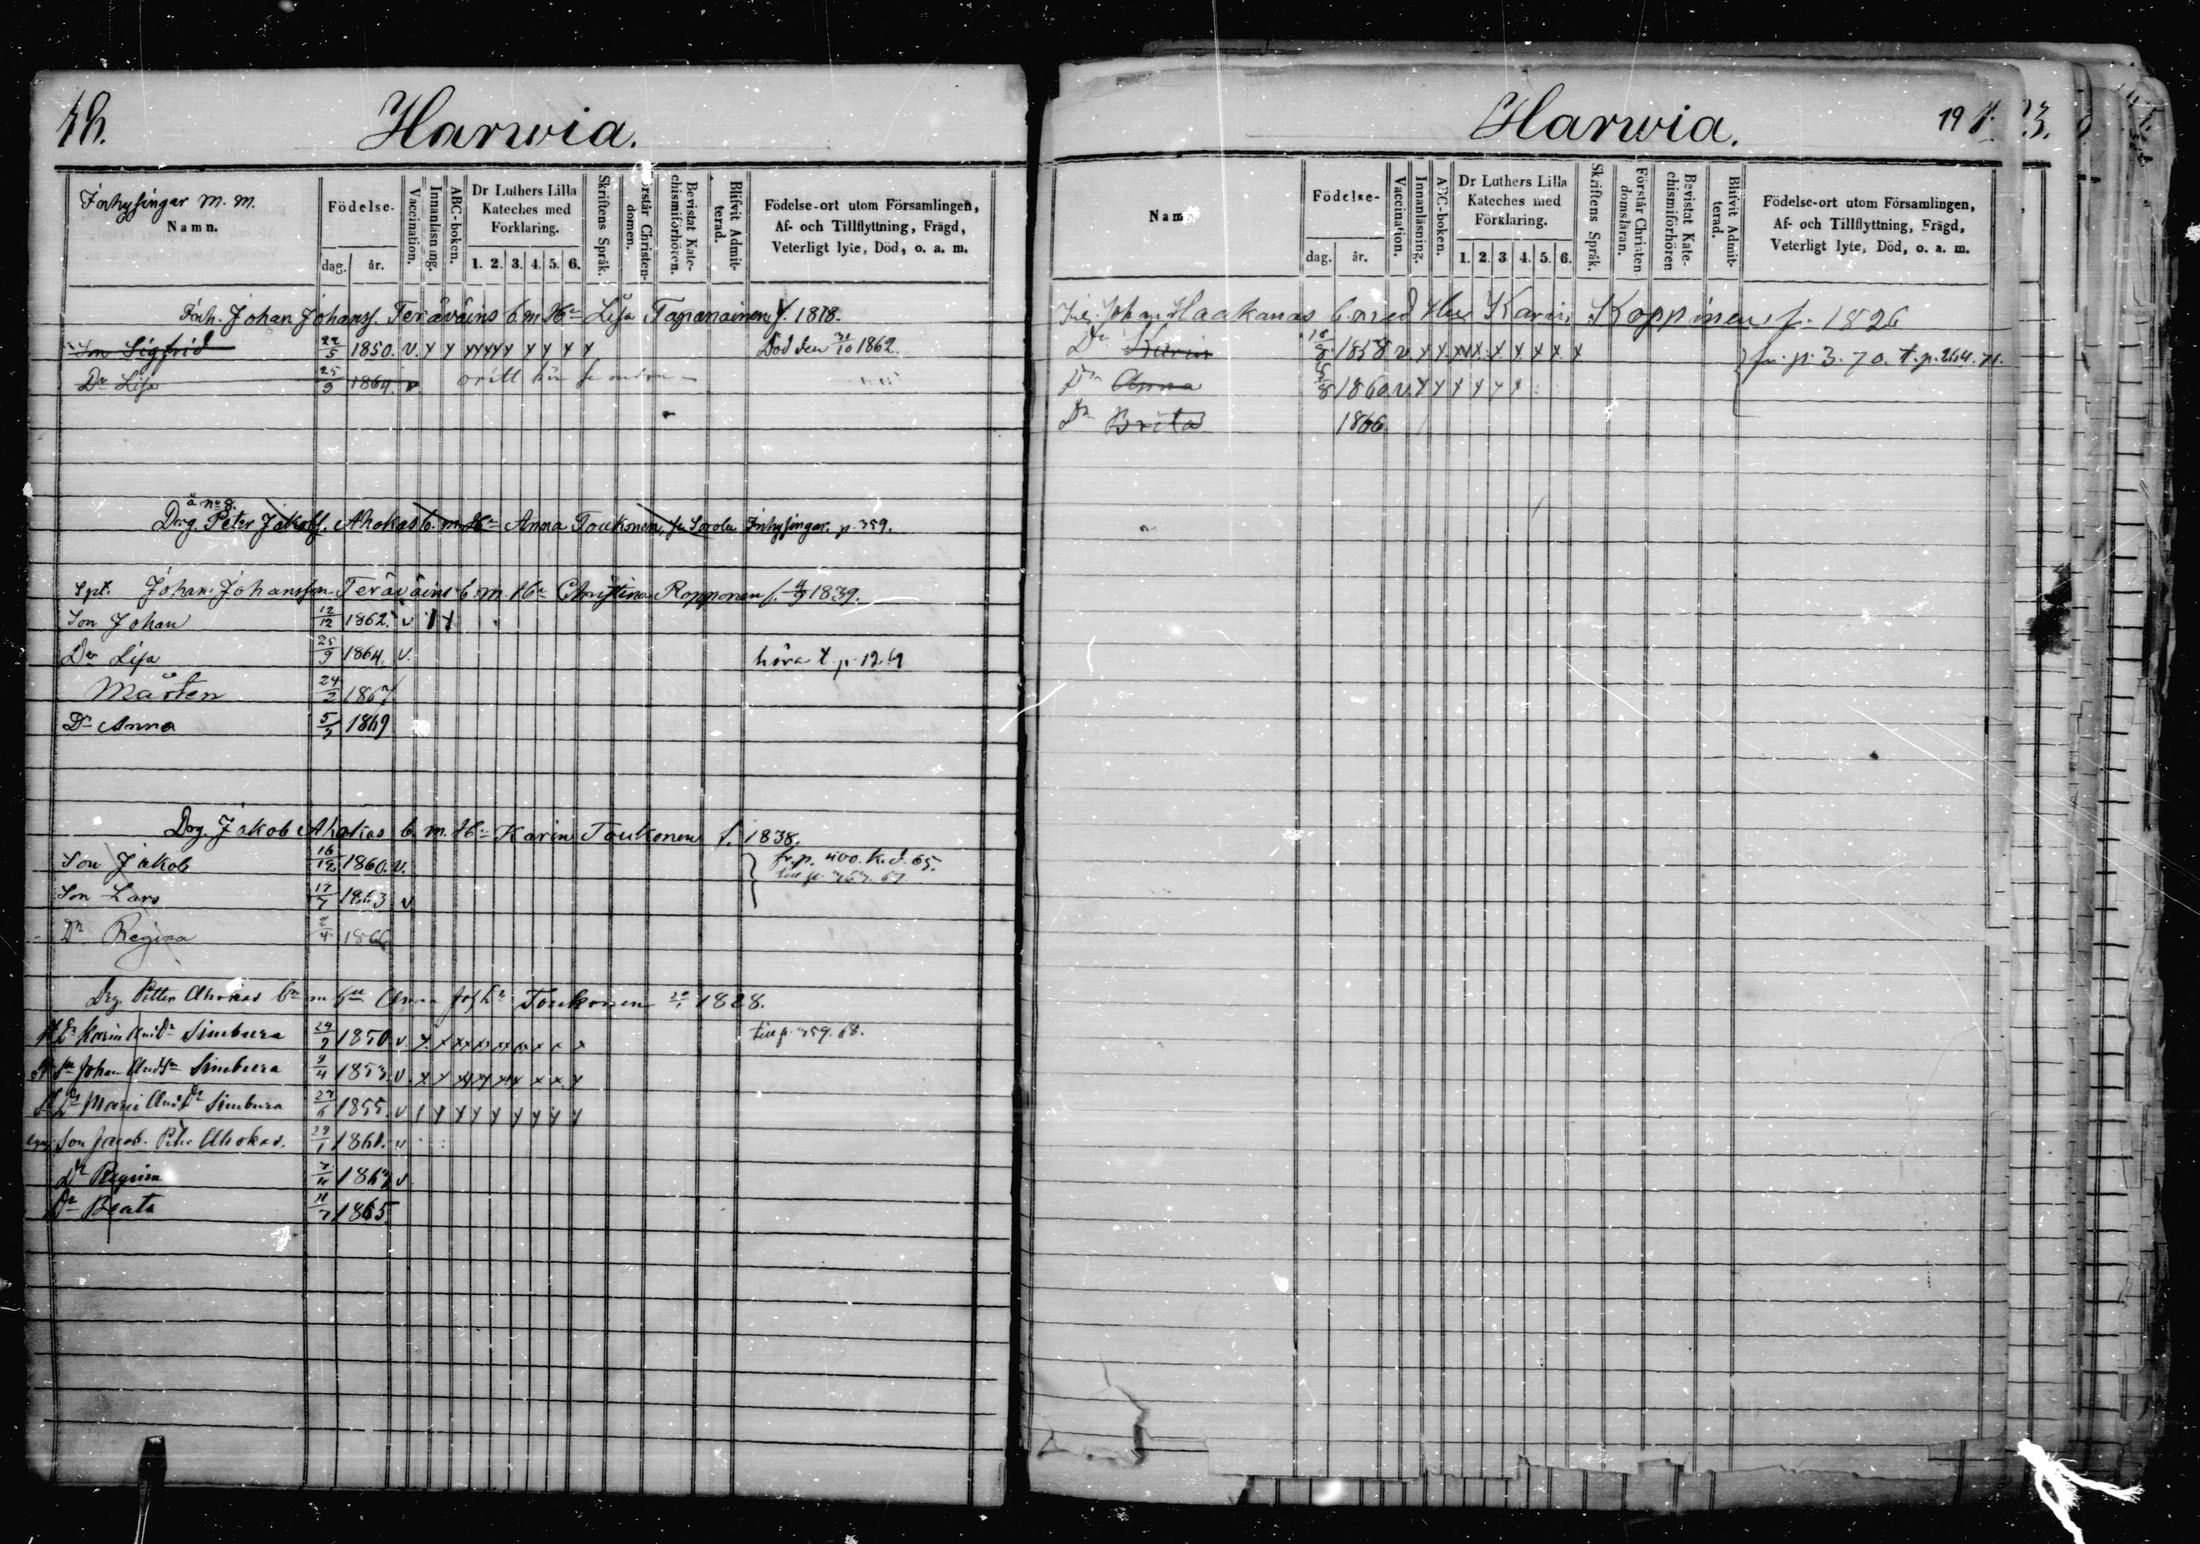 Harwia.
Inhysingar m. m.
Namn.
Födelse-
dag. år.
Vaccination.
Innanläsning.
ABC-boken.
Dr Luthers Lilla Kateches med Förklaring.
1. 2. 3. 4. 5. 6.
Skriftens Språk.
Förstår Christendomen.
Bevistat Katechismiförhören.
Blifvit Admitterad.
Födelse-ort utom Församlingen,
Af- och Tillflyttning, Frägd,
Veterligt lyte, Död, o. a. m.
Inh. Johan Johans. Teräväins b. m. Hu Lisa Tapanainen f. 1818.
Son Sigfrid 22/5 1850. v. Död den 31/10 1862.
Dr Lisa 25/9 1864. v.
å no 8.
Drg. Peter Jakobs. Ahokas b. m. Hu Anna Toukonen, fr Sorola Inhysingar. p. 359.
Spt. Johan Johansson Teräväins b. m. Hu Christina Ropponen f. 4/9 1839.
Son Johan 12/12 1862. v
Dr Lisa 25/9 1864. v. höra t. p. 12.
Mårten 24/2 1867
Dr Anna 5/7 1869
Drg. Jakob Ahokas b. m. Hu Karin Toukonen f. 1838.
Son Jakob 16/12 1860. v. fr. p. 400. k. d. 65.
Son Lars 17/7 1863 v till p. 367. 67.
Dr Regina 2/4 1866
Drg Petter Ahokas bn m hu Anna Toukonen 1828.
Dr Karin And. Dr Simbura 29/9 1850 v. till p. 359. 68.
Sn Johan And. Sn Simbura 9/4 1853. v
Dr Maria And. Dr Simbura 27/6 1855 v
Son Jacob Peter Ahokas. 29/1 1861. v
Dr Regina 7/11 1863 v
Dr Beata 11/7 1865
Harwia.
19
Namn.
Födelse-
dag. år.
Vaccination.
Innanläsning.
ABC-boken.
Dr Luthers Lilla Kateches med Förklaring.
1. 2. 3. 4. 5. 6.
Skriftens Språk.
Förstår Christendomsläran.
Bevistat Katechismiförhören
Blifvit Admitterad.
Födelse-ort utom Församlingen,
Af- och Tillflyttning, Frägd,
Veterligt lyte, Död, o. a. m.
Johan Haakanas b. med Hu Karin Koppinen f. 1826
Dr Karin 1858 v fr. p. 3. 70. t. p. 264. 71.
Dr Anna 1860 v.
Dr Brita 1866